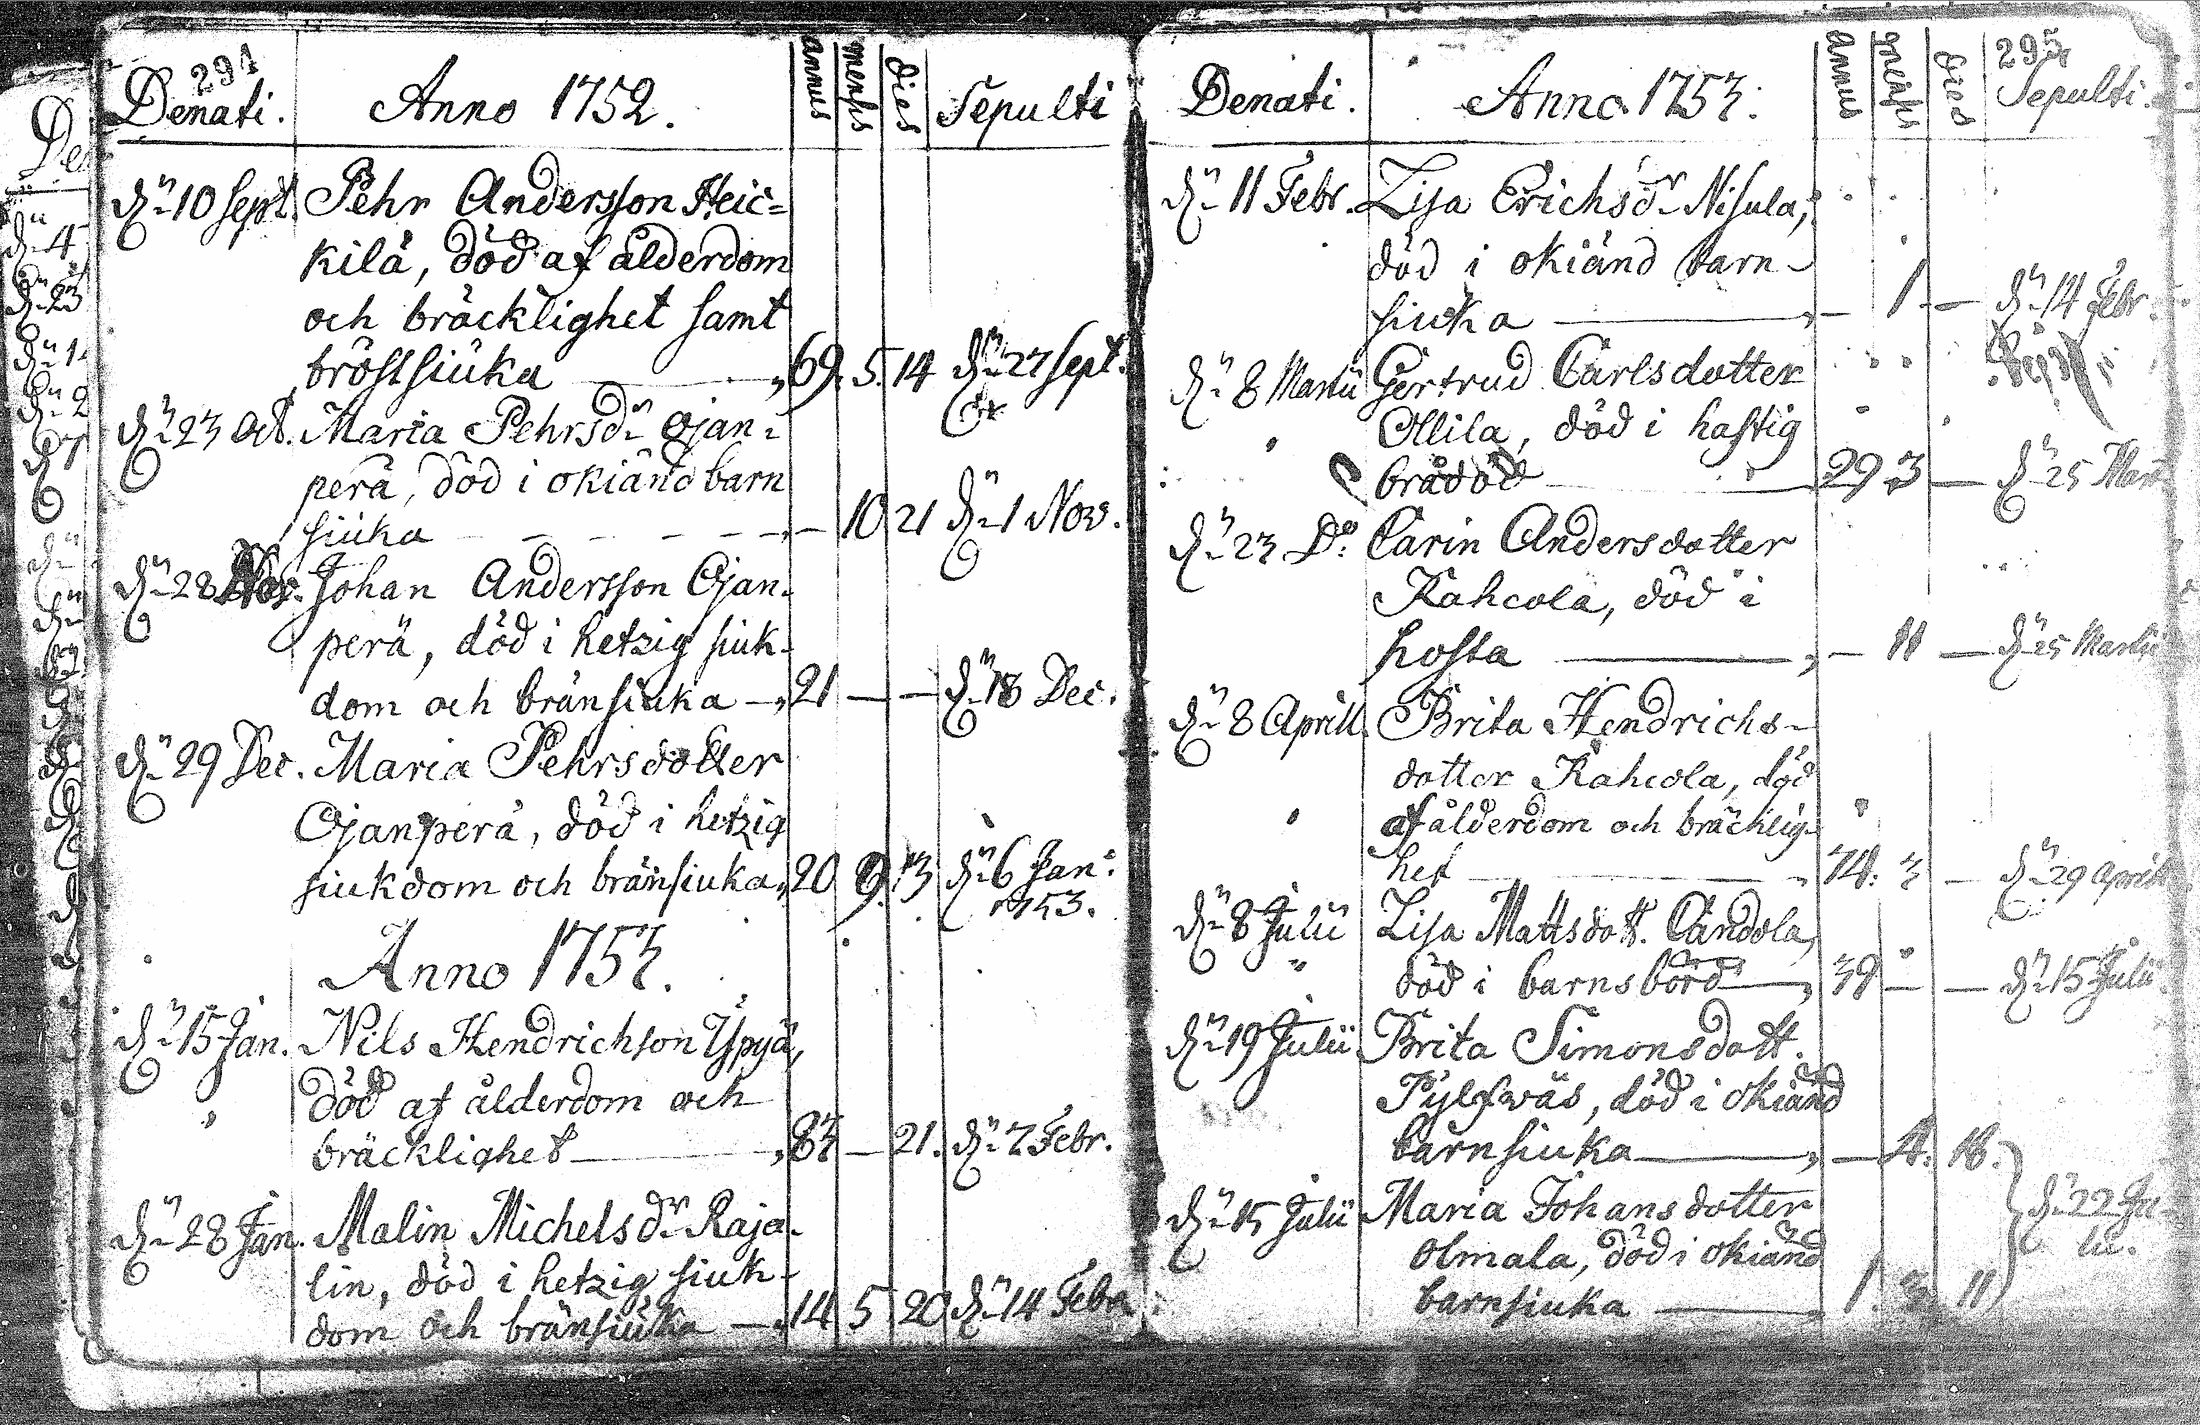 291
Denati. Anno 1752. annus mensis dies Sepulti
dn 10 Sept. Pehr Andersson Heic=
kilä, död af ålderdom
och bräcklighet samt
bröstsiuka 69. 5. 14 dn 27 Sept.
dn 23 Oct. Maria Pehrsdr Ojan=
perä, död i okiänd barn
siuka - 10 21 dn 1 Nov.
dn 28 Nov. Johan Andersson Ojan-
perä, död i hetzig siuk-
dom och bränsiuka 21 - - dn 18 Dec.
dn 29 Dec. Maria Pehrsdotter
Ojanperä, död i hetzig
siukdom och bränsiuka, 20 9. 13 dn 6 Jan:
1753.
Anno 1753.
dn 15 Jan. Nils Hendrichson Ypyä,
död af ålderdom och
bräcklighet 83 - 21. dn 2 Febr.
dn 28 Jan. Malin Michelsdr Raja-
lin, död i hetzig siuk-
dom och bränsiuka 14 5 20 dn 14 Febr
295
Denati. Anno 1753. annus mensis dies Sepulti.
dn 11 Febr. Lisa Erichsdr Nisula,
död i okiänd barn-
siuka - 1 - dn 14 Febr.
dn 8 Martii Gertrud Carlsdotter
Ollila, död i hastig
brådöd 29 3 - dn 25 Mart
dn 23 Do: Carin Andersdotter
Kahcola, död i
hosta - 11 - dn 25 Martii
dn 8 Aprill. Brita Hendrichs-
dotter Kahcola, död
af ålderdom och bräcklig-
het 74. 3 - dn 29 April
dn 8 Julii Lisa Mattsdott. Candola,
död i barnsbörd 39 - - dn 15 Julii
dn 19 Julii Brita Simonsdott.
Pylfwäs, död i okiänd
barnsiuka - 4. 18.
dn 15 Julii Maria Johansdotter
Olmala, död i okiänd
barnsiuka 1. 3 11 dn 22 Ju-
lii.